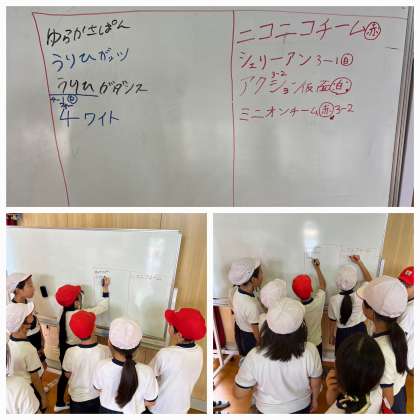 ゆるかさぱん
うりひガッツ
うりひガダンス
4-2白
4 ワイト
ニコニコチーム赤
シェリーアン3-1白
3-2
アクション仮面白
ミニオンチーム赤3-2